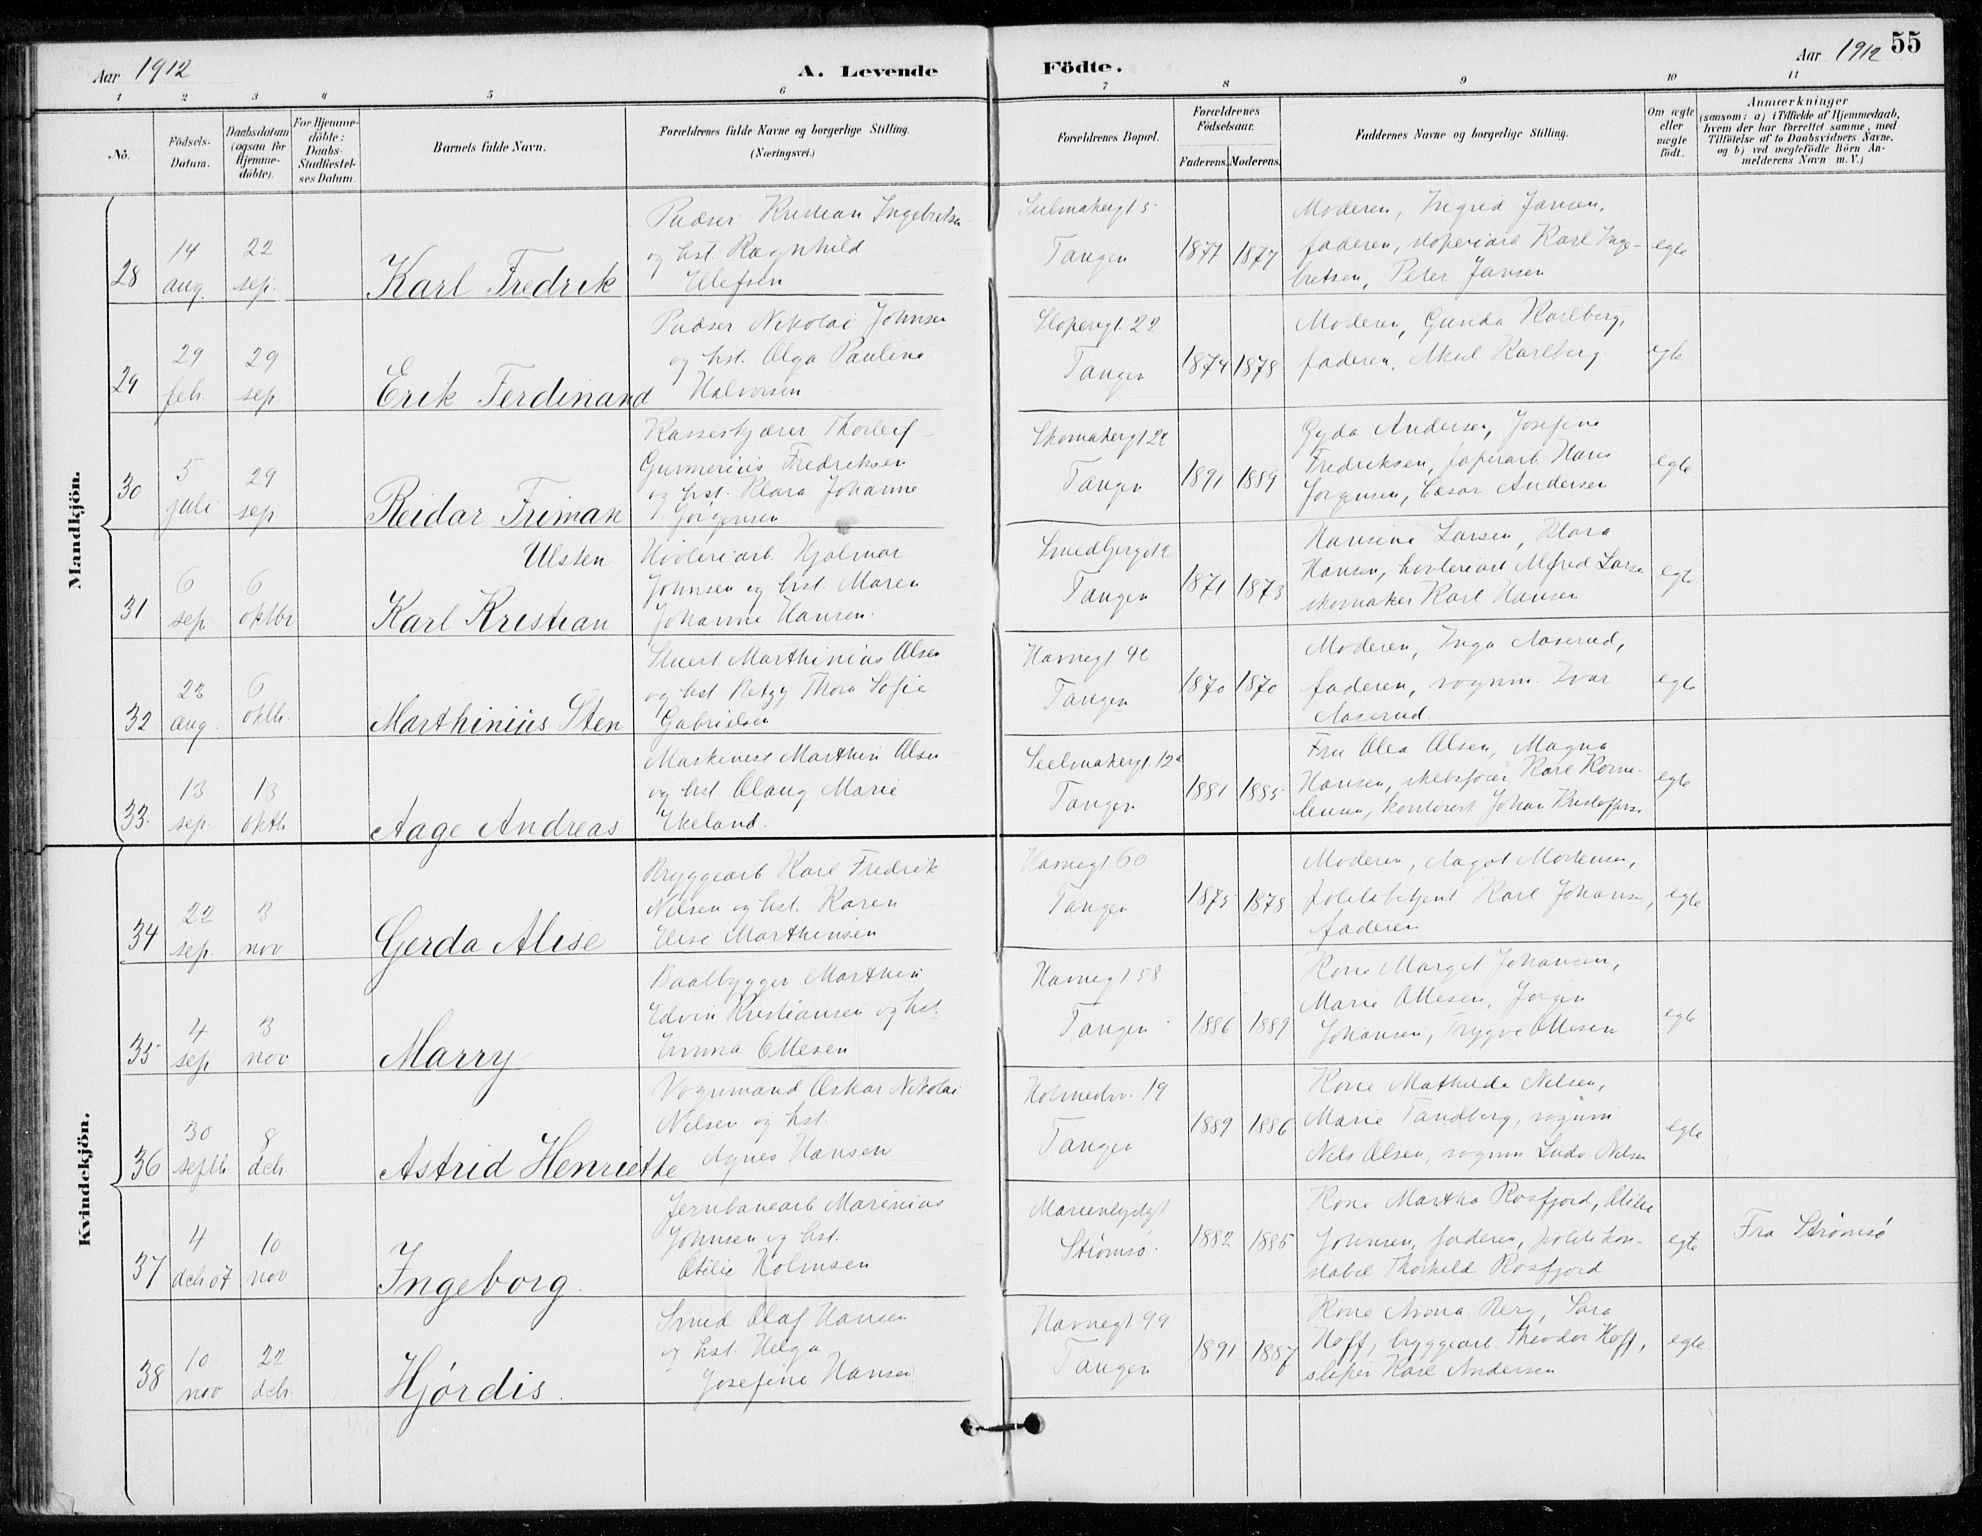 Aar 1912
A. Levende
Födte.
Aar 1912
55
1 2 3 4 5 6 7 8 9 10 11
No.
Födsels-Datum.
Daabsdatum (ogsaa for Hjemme-döbte).
For Hjemme-döbte: Daabs-Stadfæstel-ses Datum.
Barnets fulde Navn.
Forældrenes fulde Navne og borgerlige Stilling.
(Næringsvei.)
Forældrenes Bopæl.
Forældrenes Födselsaar.
Faderens. Moderens.
Faddernes Navne og borgerlige Stilling.
Om ægte eller uægte födt.
Anmærkninger
(saasom: a) i Tilfælde af Hjemmedaab,
hvem der har forrettet samme, med
Tilföielse af to Daabsvidners Navne,
og b) ved uægtefödte Börn An-
melderens Navn m. V.)
Mandkjön.
28
14 aug.
22 sep.
Karl Fredrik
Pudser Kristian Ingebretsen
og hst. Ragnhild
Ulefsen
Seilmakergt 5
Tangen
1877 1877
Moderen, Ingrid Jansen,
faderen, sloperiarb Karl Inge-
bretsen, Peter Jansen
egte
29
29 feb.
29 sep.
Erik Ferdinand
Pudser Nikolai Johnsen
og hst. Olga Pauline
Halvorsen
Sloperigt. 22
Tangen
1874 1878
Moderen, Gunda Karlberg,
faderen, Aksel Karlberg
egte
30
5 juli
29 sep
Reidar Friman
Ulsten
Kasseskjærer Thorleif
Gunnerius Fredriksen
og hst. Klara Johanne
Jørgensen
Skomakergt 22
Tangen
1891 1889
Gyda Andersen, Josefine
Fredriksen, Hans
Jørgensen, Cæsar Andersen
egte
31
6 sep
6 oktbr
Karl Kristian
Høvleriarb Hjalmar
Johnsen og hst. Maren
Johanne Hansen.
Tangen
1871 1873
Hansine Larsen, Klara
Hansen, høvleriarb Alfred Larse
skomaker Karl Hansen
egte
32
22 aug.
6 oktb.
Marthinius Sten
Stuert Marthinius Olsen
og hst Betzy Thora Sofie
Gabrielsen
Havnegt 42
Tangen
1870 1870
Moderen, Inga Aaserud,
faderen, vognm. Ivar
Aaserud.
egte
33.
13 sep.
13 oktb
Aage Andreas
Maskinist Marthin Olsen
og hst Olaug Marie
Ekeland.
Seilmakergt. 12a
Tangen
1881 1885
Fru Olea Olsen, Magna
Hansen, skibsfører Karl Korne-
liusen, kontorist Johan Kristoffers
egte
Kvindekjön.
34
22 sep.
3 nov
Gerda Alise
Bryggearb Karl Fredrik
Nilsen og hst. Karen
Elise Marthinsen
Havnegt 60
Tangen
1875 1878
Moderen, Aagot Mortensen,
Politibetjent Karl Johanse,
faderen
egte
35
4 sep
3 nov
Marry
Baatbygger Marthin
Edvin Kristiansen og hst.
Emma Ottesen
Havnegt 58
Tangen
1886 1889
Kone Margit Johansen,
Marie Ottesen, Jørgen
Johansen, Trygve Ottesen
egte
36
30 septb
8 dcb
Astrid Henriette
Vognmand Oskar Nikolai
Nilsen og hst.
Agnes Hansen
Holmedv. 19
Tangen
1889 1886
Kone Mathilde Nilsen,
Marie Tandberg, vognm
Nils Olsen, vognm Ludv Nilsen
egte
37
4 dcb 07
10 nov
Ingeborg.
Jernbanearb Marinius
Johnsen og hst.
Otilie Holmsen
Marienlydgt
Strømsø.
1882 1885
Kone Martha Rosfjord, Otilie
Johnsen, faderen, politikon-
stabel Thorkild Rosfjord
egte
Fra Strømsø
38
10 nov
22 dcb.
Hjørdis.
Smed Olaf Hansen
og hst. Helga
Josefine Hansen
Havnegt 99
Tangen
1891 1887
Kone Anna Berg, Sara
Hoff, bryggearb. Theodor Hoff,
sliper Karl Andersen
egte.